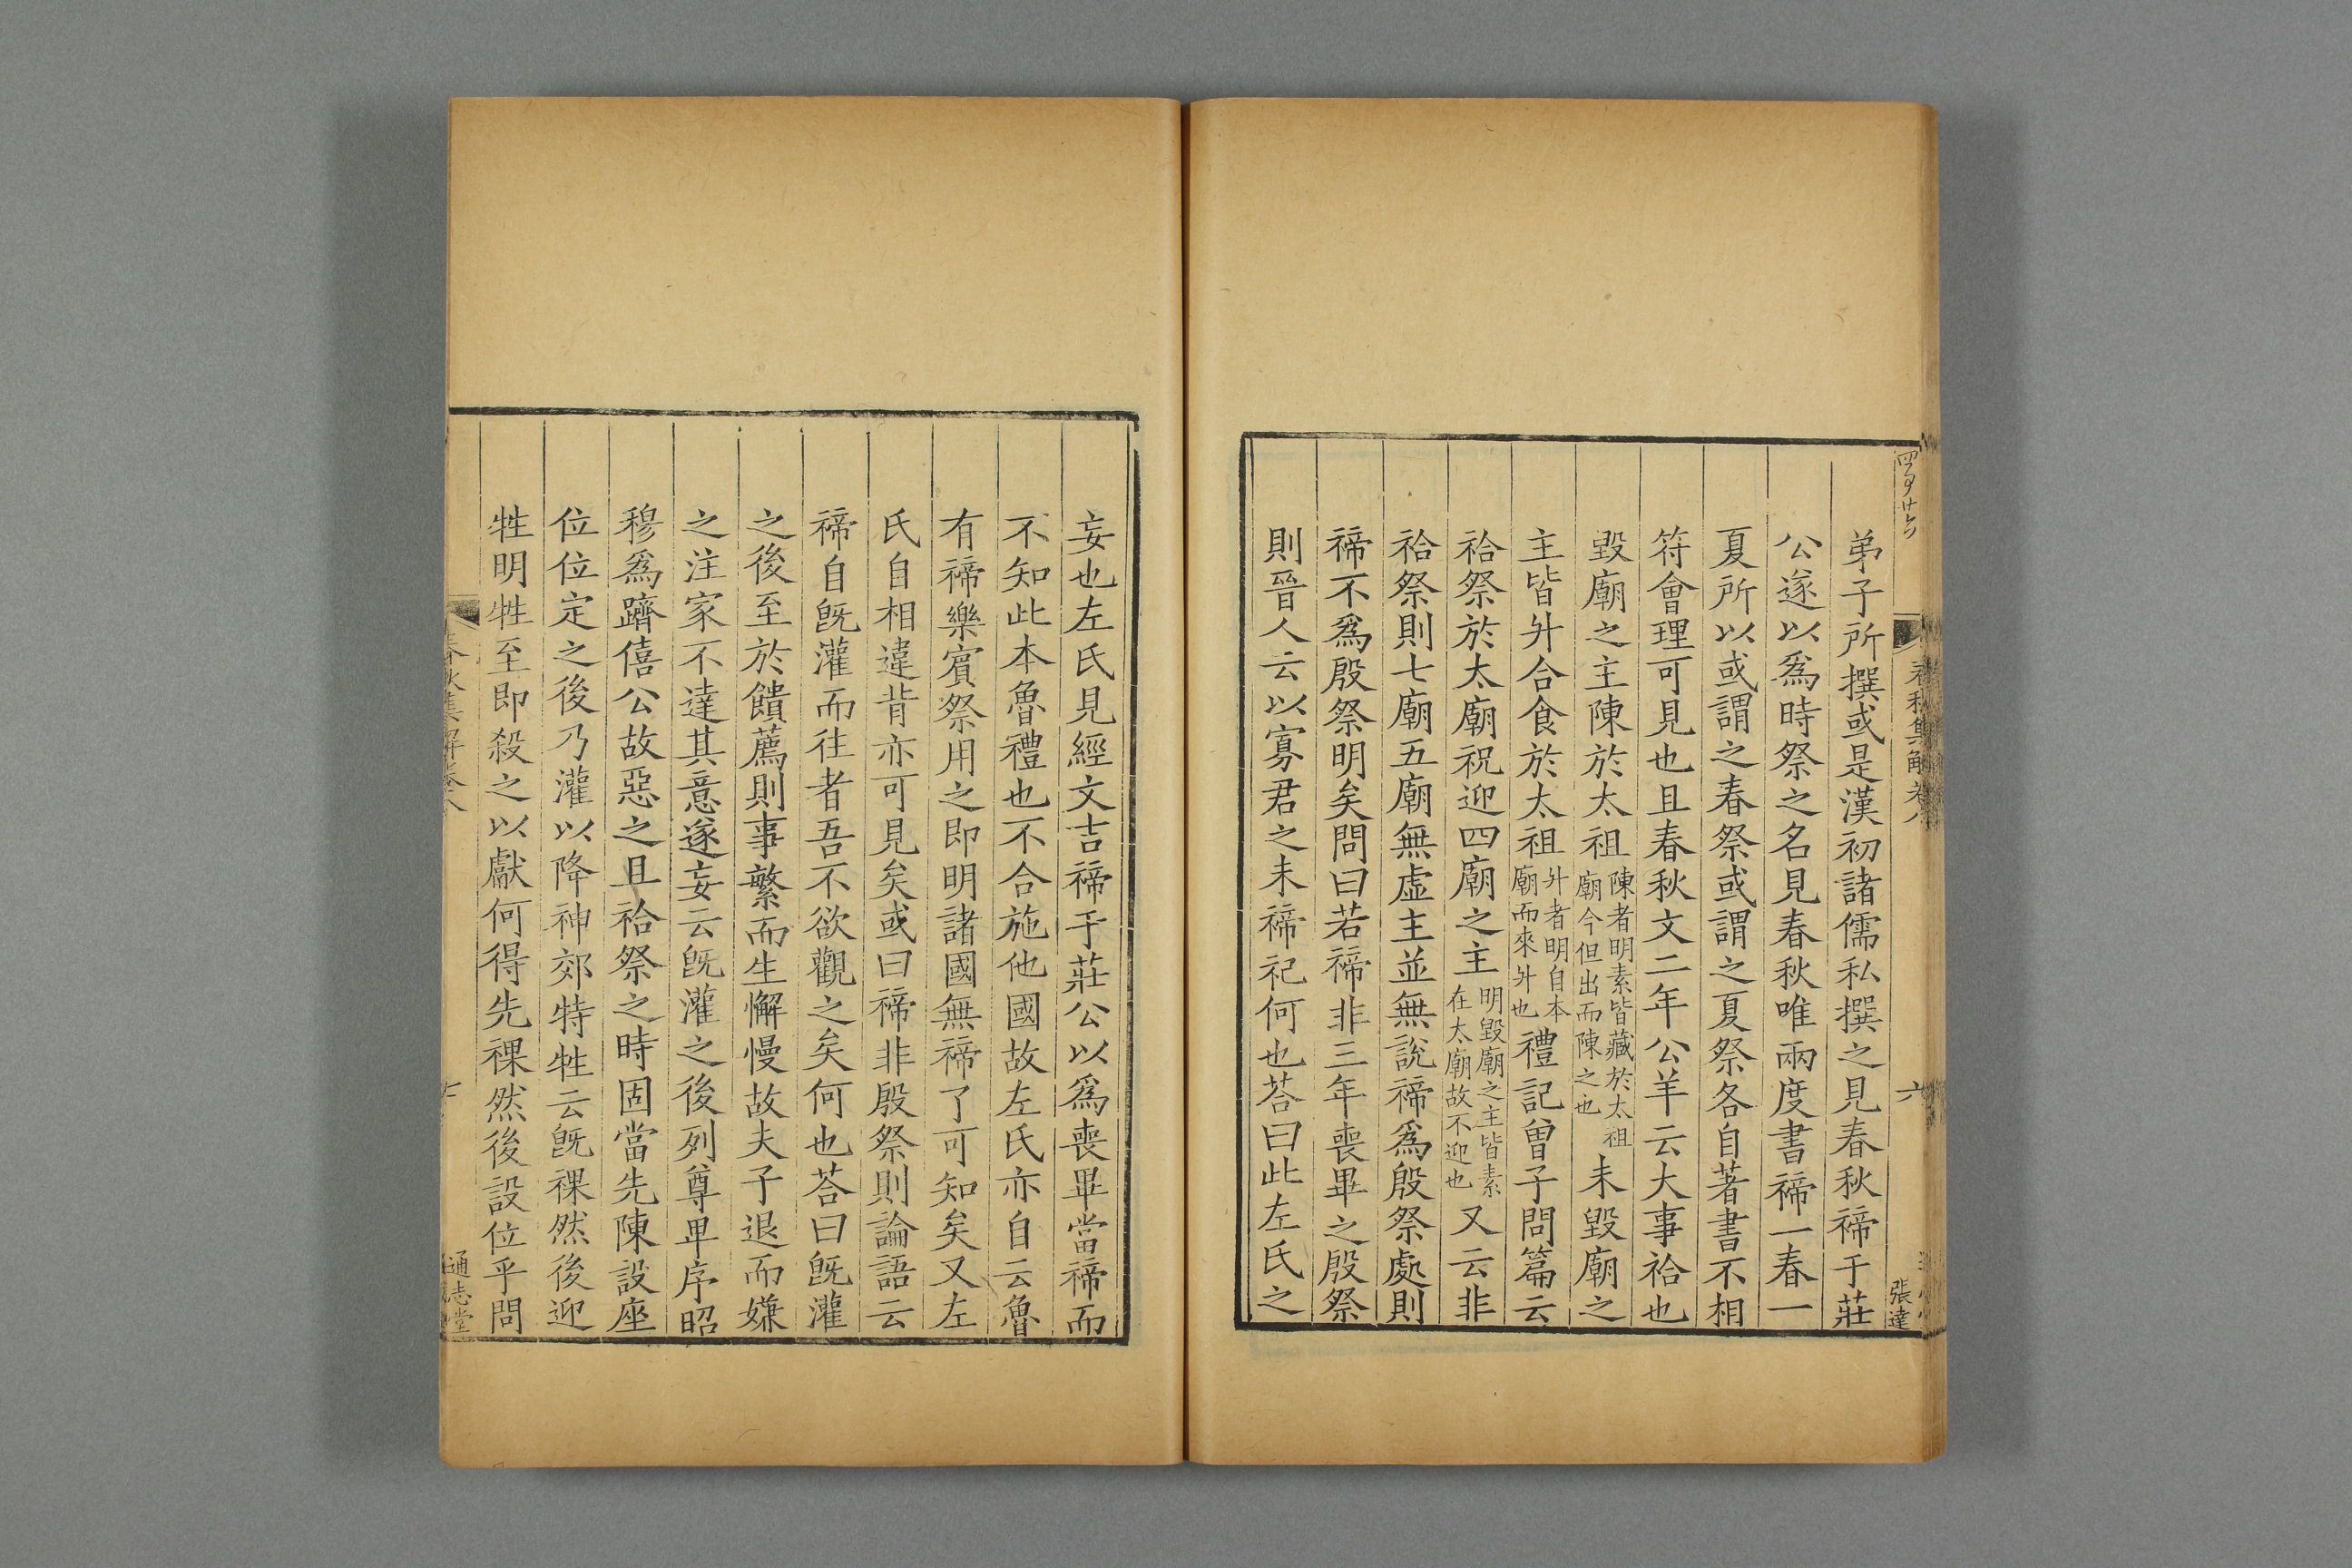 春秋集解卷八
六
張達
弟子所撰或是漢初諸儒私撰之見春秋禘于莊
公遂以爲時祭之名見春秋唯兩度書禘一春一
夏所以或謂之春祭或謂之夏祭各自著書不相
符會理可見也且春秋文二年公羊云大事祫也
毀廟之主陳於太祖陳者明素皆藏於太祖廟今但出而陳之也未毀廟之
主皆升合食於太祖升者明自本廟而來升也禮記曾子問篇云
祫祭於太廟祝迎四廟之主明毀廟之主皆素在太廟故不迎也又云非
祫祭則七廟五廟無虛主並無說禘爲殷祭處則
禘不爲殷祭明矣問曰若禘非三年喪畢之殷祭
則晉人云以寡君之未禘祀何也荅曰此左氏之
妄也左氏見經文吉禘于莊公以爲喪畢當禘而
不知此本魯禮也不合施他國故左氏亦自云魯
有禘樂賔祭用之即明諸國無禘了可知矣又左
氏自相違背亦可見矣或曰禘非殷祭則論語云
禘自旣灌而往者吾不欲觀之矣何也荅曰旣灌
之後至於饋薦則事繁而生懈慢故夫子退而嫌
之注家不達其意遂妄云旣灌之後列尊卑序昭
穆爲躋僖公故惡之且祫祭之時固當先陳設座
位位定之後乃灌以降神郊特牲云旣祼然後迎
牲明牲至即殺之以獻何得先祼然後設位乎問
春秋集解卷八
七
通志堂